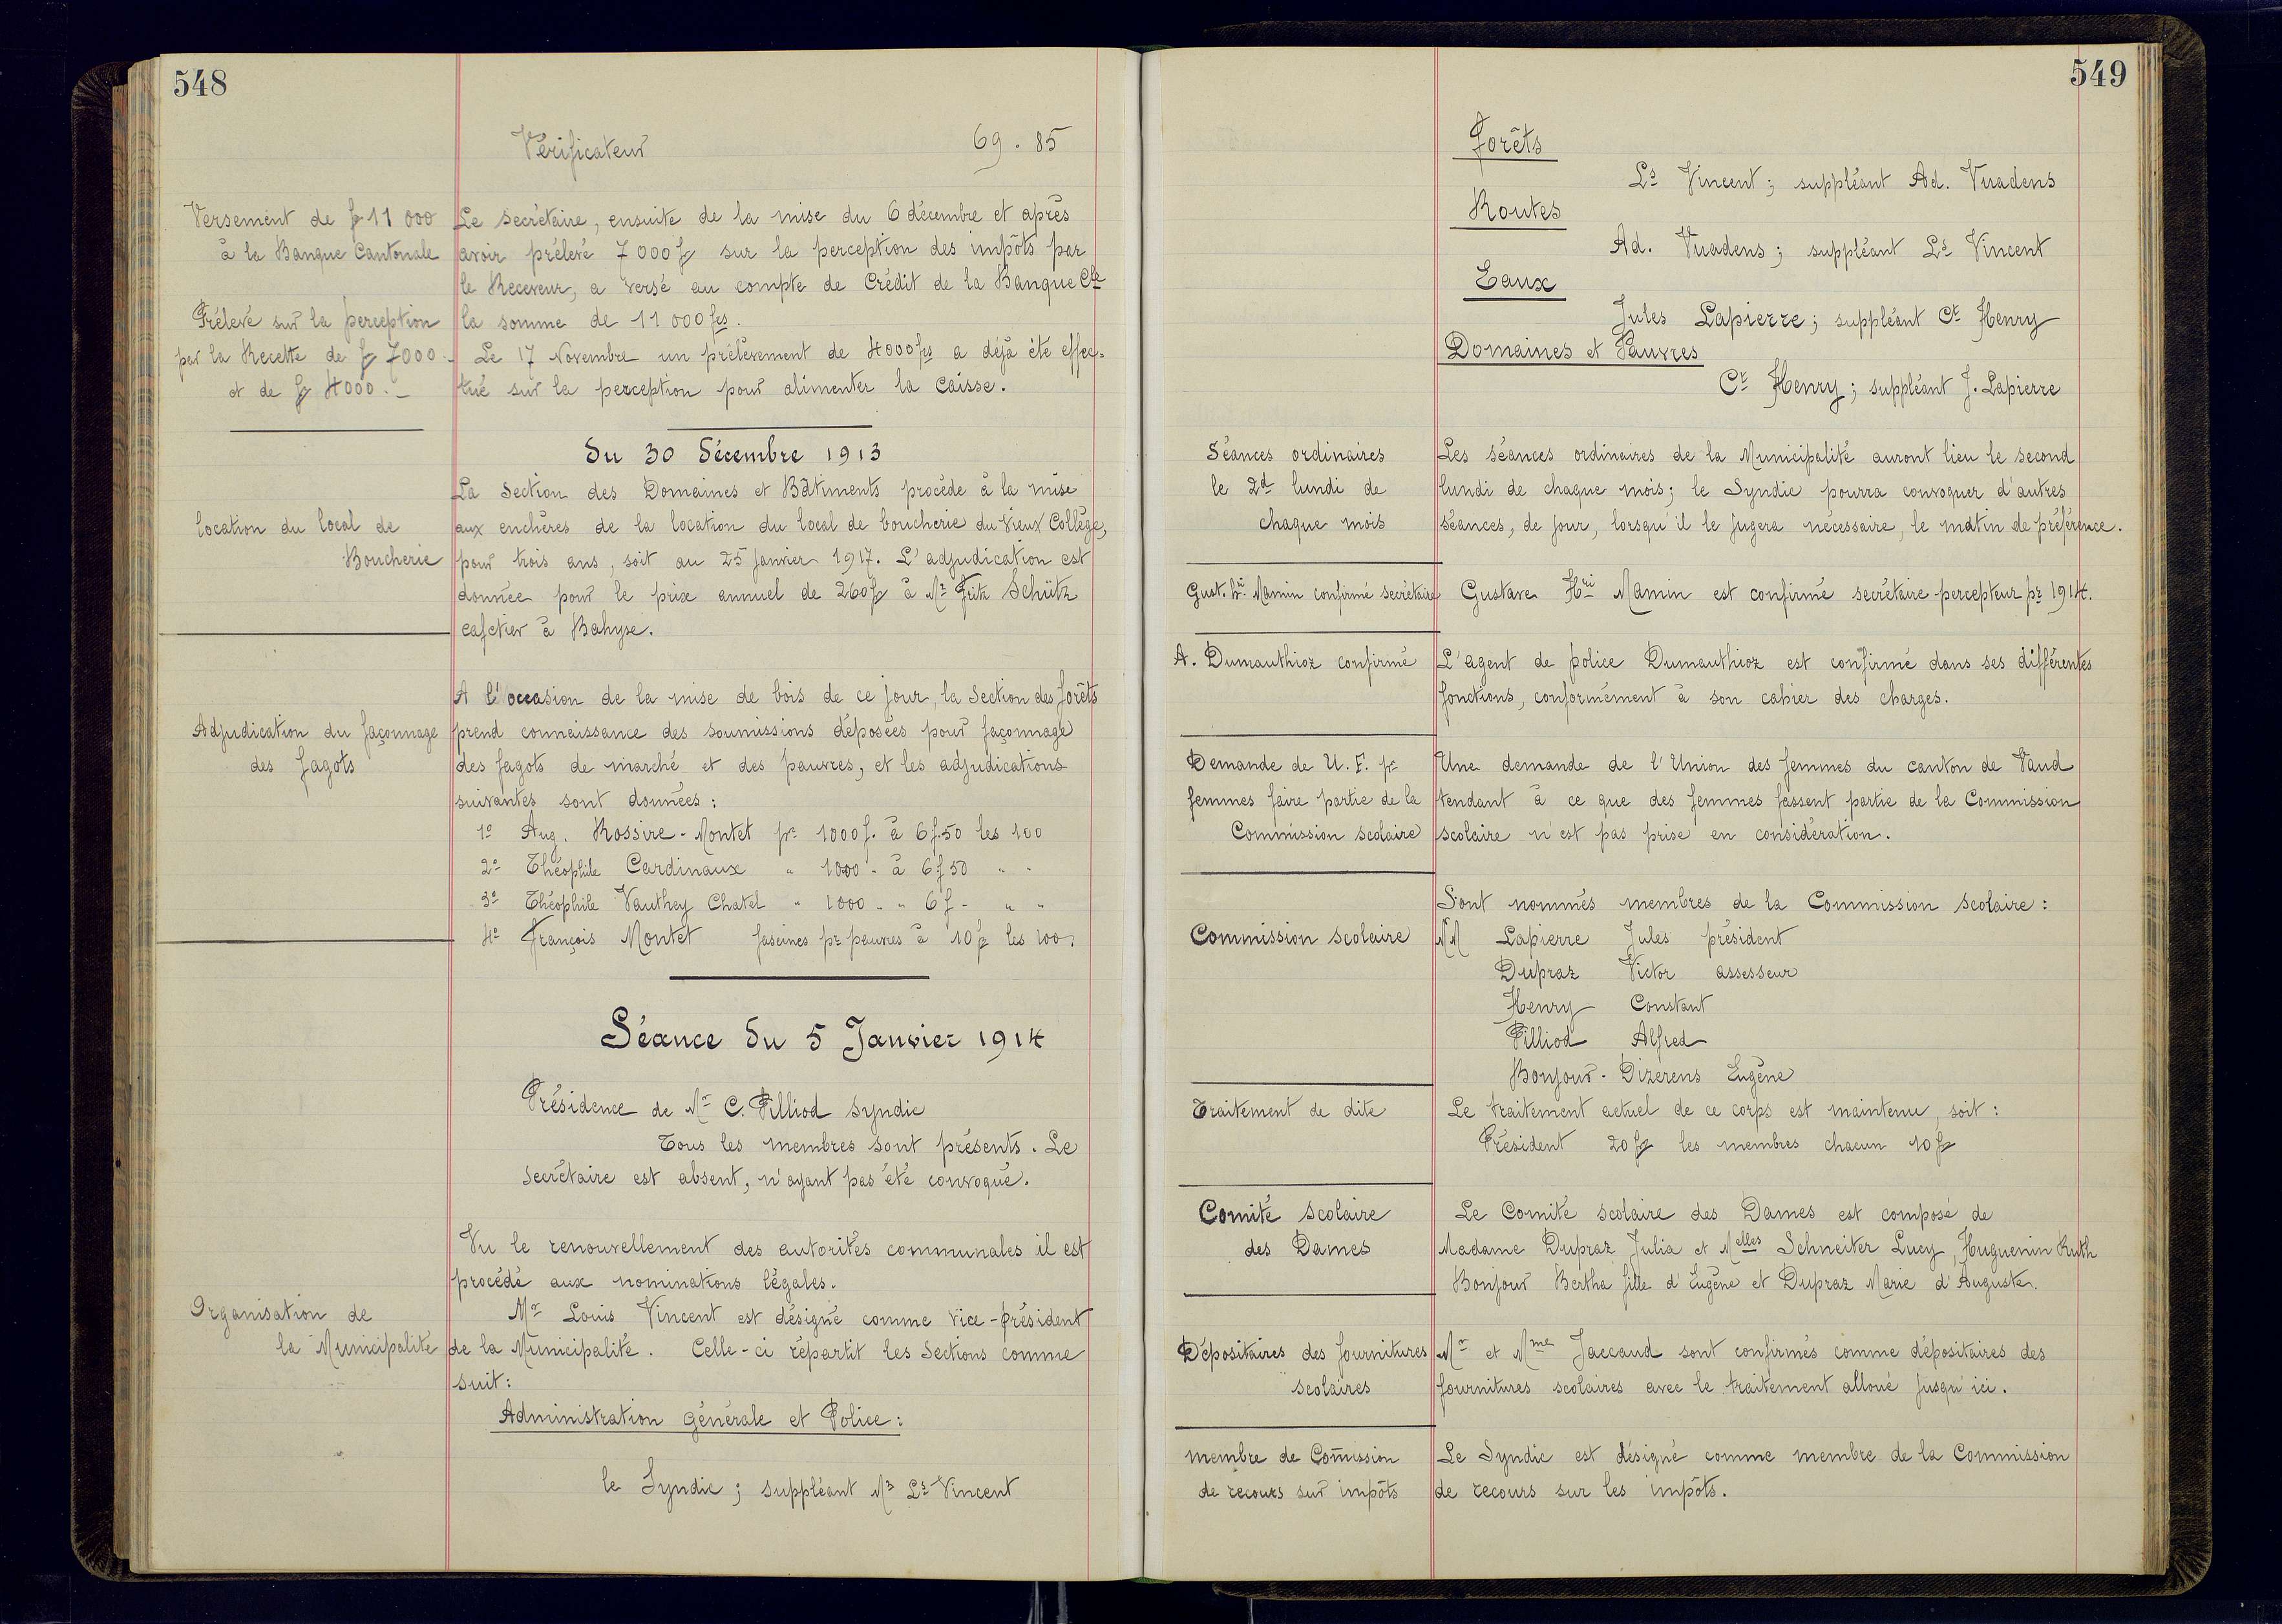 548
Vérificateur 69.85
Versement de fr 11 000
à la Banque Cantonale
Prélevé sur la perception
par la Recette de fr 7000.-
et de fr 4000.-
Le secrétaire, ensuite de la mise du 6 décembre et après
avoir prélevé 7 000 fr sur la perception des impôts par
le Receveur, a versé au compte de Crédit de la Banque Cle
la somme de 11 000 frs.
Le 17 Novembre un prélèvement de 4000 frs a déjà été effec-
tué sur la perception pour alimenter la Caisse.
Du 30 Décembre 1913
location du local de
Boucherie
La Section des Domaines et Bâtiments procède à la mise
aux enchères de la location du local de boucherie du Vieux Collège,
pour trois ans, soit au 25 Janvier 1917. L'adjudication est
donnée pour le prix annuel de 260 fr à Mr Fritz Schütz
cafetier à Bahyse.
Adjudication du façonnage
des fagots
A l'occasion de la mise de bois de ce jour, la Section des forêts
prend connaissance des soumissions déposées pour façonnage
des fagots de marché et des pauvres, et les adjudications
suivantes sont données:
1o Aug. Rossire-Montet pr 1000 f. à 6 f.50 les 100
2o Théophile Cardinaux " 1000 - à 6 f 50 " "
3o Théophile Vauthey Chatel " 1000 " " 6 f - " "
4o François Montet fascines pr pauvres à 10 fr les 100.
Séance du 5 Janvier 1914
Présidence de Mr C. Pilliod syndic
Tous les membres sont présents. Le
secrétaire est absent, n'ayant pas été convoqué.
Vu le renouvellement des autorités communales il est
procédé aux nominations légales.
Organisation de
la Municipalité
Mr Louis Vincent est désigné comme vice-président
de la Municipalité. Celle-ci répartit les Sections comme
suit:
Administration générale et Police:
le Syndic; suppléant Mr Ls Vincent
549
Forêts
Ls Vincent; suppléant Ad. Vuadens
Routes
Ad. Vuadens; suppléant Ls Vincent
Eaux
Jules Lapierre; suppléant Ct Henry
Domaines et Pauvres
Ct Henry; suppléant J. Lapierre
Séances ordinaires
le 2d lundi de
chaque mois
Les séances ordinaires de la Municipalité auront lieu le second
lundi de chaque mois; le Syndic pourra convoquer d'autres
séances, de jour, lorsqu'il le jugera nécessaire, le matin de préférence.
Gust. Hri Mamin confirmé secrétaire
Gustave Hri Mamin est confirmé secrétaire-percepteur pr 1914.
A. Dumauthioz confirmé
L'agent de police Dumauthioz est confirmé dans ses différentes
fonctions, conformément à son cahier des charges.
Demande de U.F. pr
femmes faire partie de la
Commission scolaire
Une demande de l'Union des femmes du canton de Vaud
tendant à ce que des femmes fassent partie de la Commission
scolaire n'est pas prise en considération.
Commission scolaire
Sont nommés membres de la Commission scolaire:
MM Lapierre Jules président
Dupraz Victor assesseur
Henry Constant
Pilliod Alfred
Bonjour-Dizerens Eugène
Traitement de dite
Le traitement actuel de ce corps est maintenu, soit:
Président 20 fr les membres chacun 10 fr
Comité scolaire
des Dames
Le Comité scolaire des Dames est composé de
Madame Dupraz Julia et Melles Schneiter Lucy, Huguenin Ruth
Bonjour Bertha fille d'Eugène et Dupraz Marie d'Auguste.
Dépositaires des fournitures
scolaires
Mr et Mme Jaccaud sont confirmés comme dépositaires des
fournitures scolaires avec le traitement alloué jusqu'ici.
membre de Com̄ission
de recours sur impôts
Le Syndic est désigné comme membre de la Commission
de recours sur les impôts.